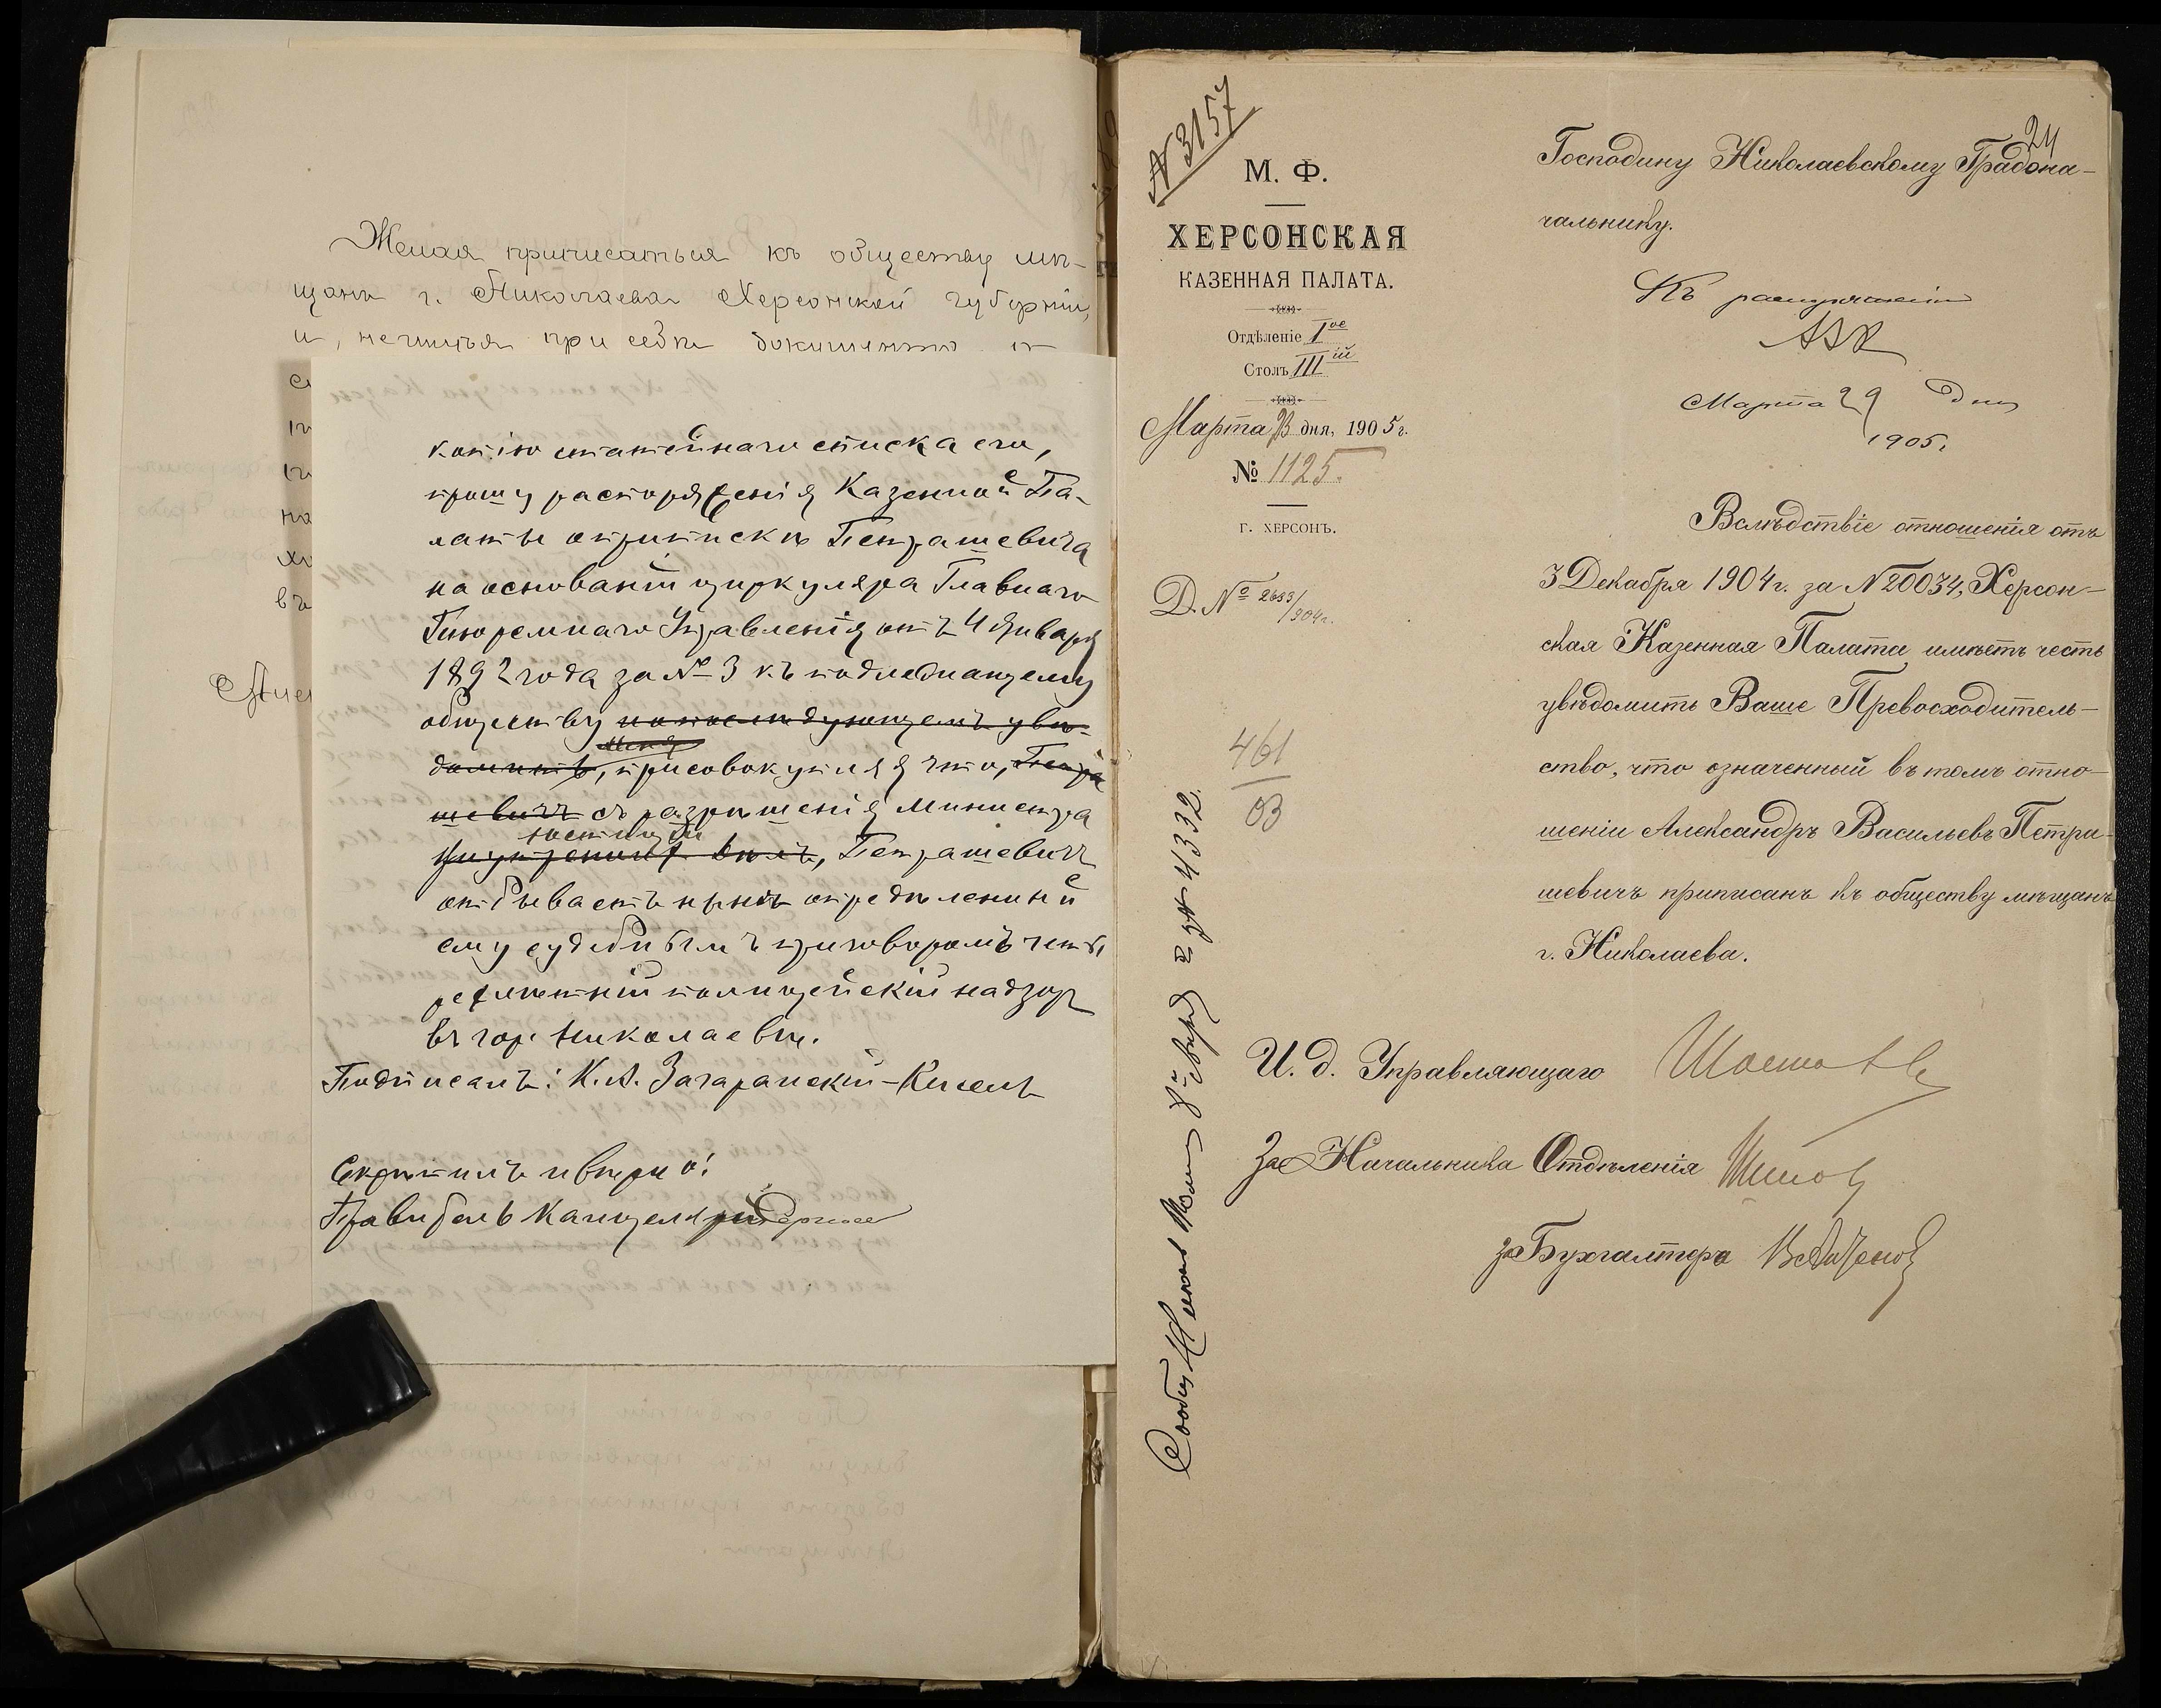 Желая приписаться къ обществу мѣ-
щанъ г. Николаева Херсонской губерніи,
и, неимѣя при себѣ документа
копію статейнаго списка его,
прошу распоряженія Казенной Па-
латы о припискѣ Петрашевича
на основаніи циркуляра Главнаго
Тюремнаго Управленія отъ 4 Января
1892 года за № 3 къ подлежащему
обществу и о послѣдующемъ увѣ-
домить, присовокупляя что, Петра
меня
шевичъ съ разрѣшенія Министра
юстиціи
Внутреннихъ Дѣлъ, Петрашевичъ
отбываетъ нынѣ опредѣленный
ему судебнымъ приговоромъ четы
рехлѣтній полицейскій надзоръ
въ гор. Николаевѣ.
Подписалъ: К. А. Загаранскій-Кисель
Скрѣпилъ и вѣрно:
Правитель Канцеляріи
№ 3157
М. Ф.
ХЕРСОНСКАЯ
КАЗЕННАЯ ПАЛАТА.
Отдѣленіе I ое
Столъ III ій
Марта 23 дня, 1905 г.
№ 1125.
Г. ХЕРСОНЪ.
Д. № 2683/904 г.
461
03
24
Господину Николаевскому Градона-
чальнику.
Къ распоряженію
Марта 29 дня
1905 г.
Вслѣдствіе отношенія отъ
3 Декабря 1904 г. за № 20034, Херсон-
ская Казенная Палата имѣетъ честь
увѣдомить Ваше Превосходитель-
ство, что означенный въ томъ отно-
шеніи Александръ Васильевъ Петра-
шевичъ приписанъ къ обществу мѣщанъ
г. Николаева.
И. д. Управляющаго
За Начальника Отдѣленія
за Бухгалтера
4332.